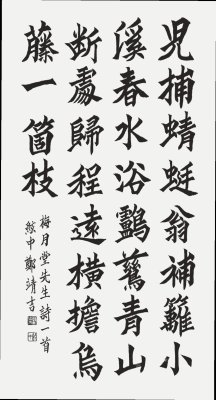 兒捕蜻蜓翁補籬小
溪春水浴鸕鶿青山
断處歸程遠橫擔烏
藤一箇枝
梅月堂先生詩一首
中鄭靖吉